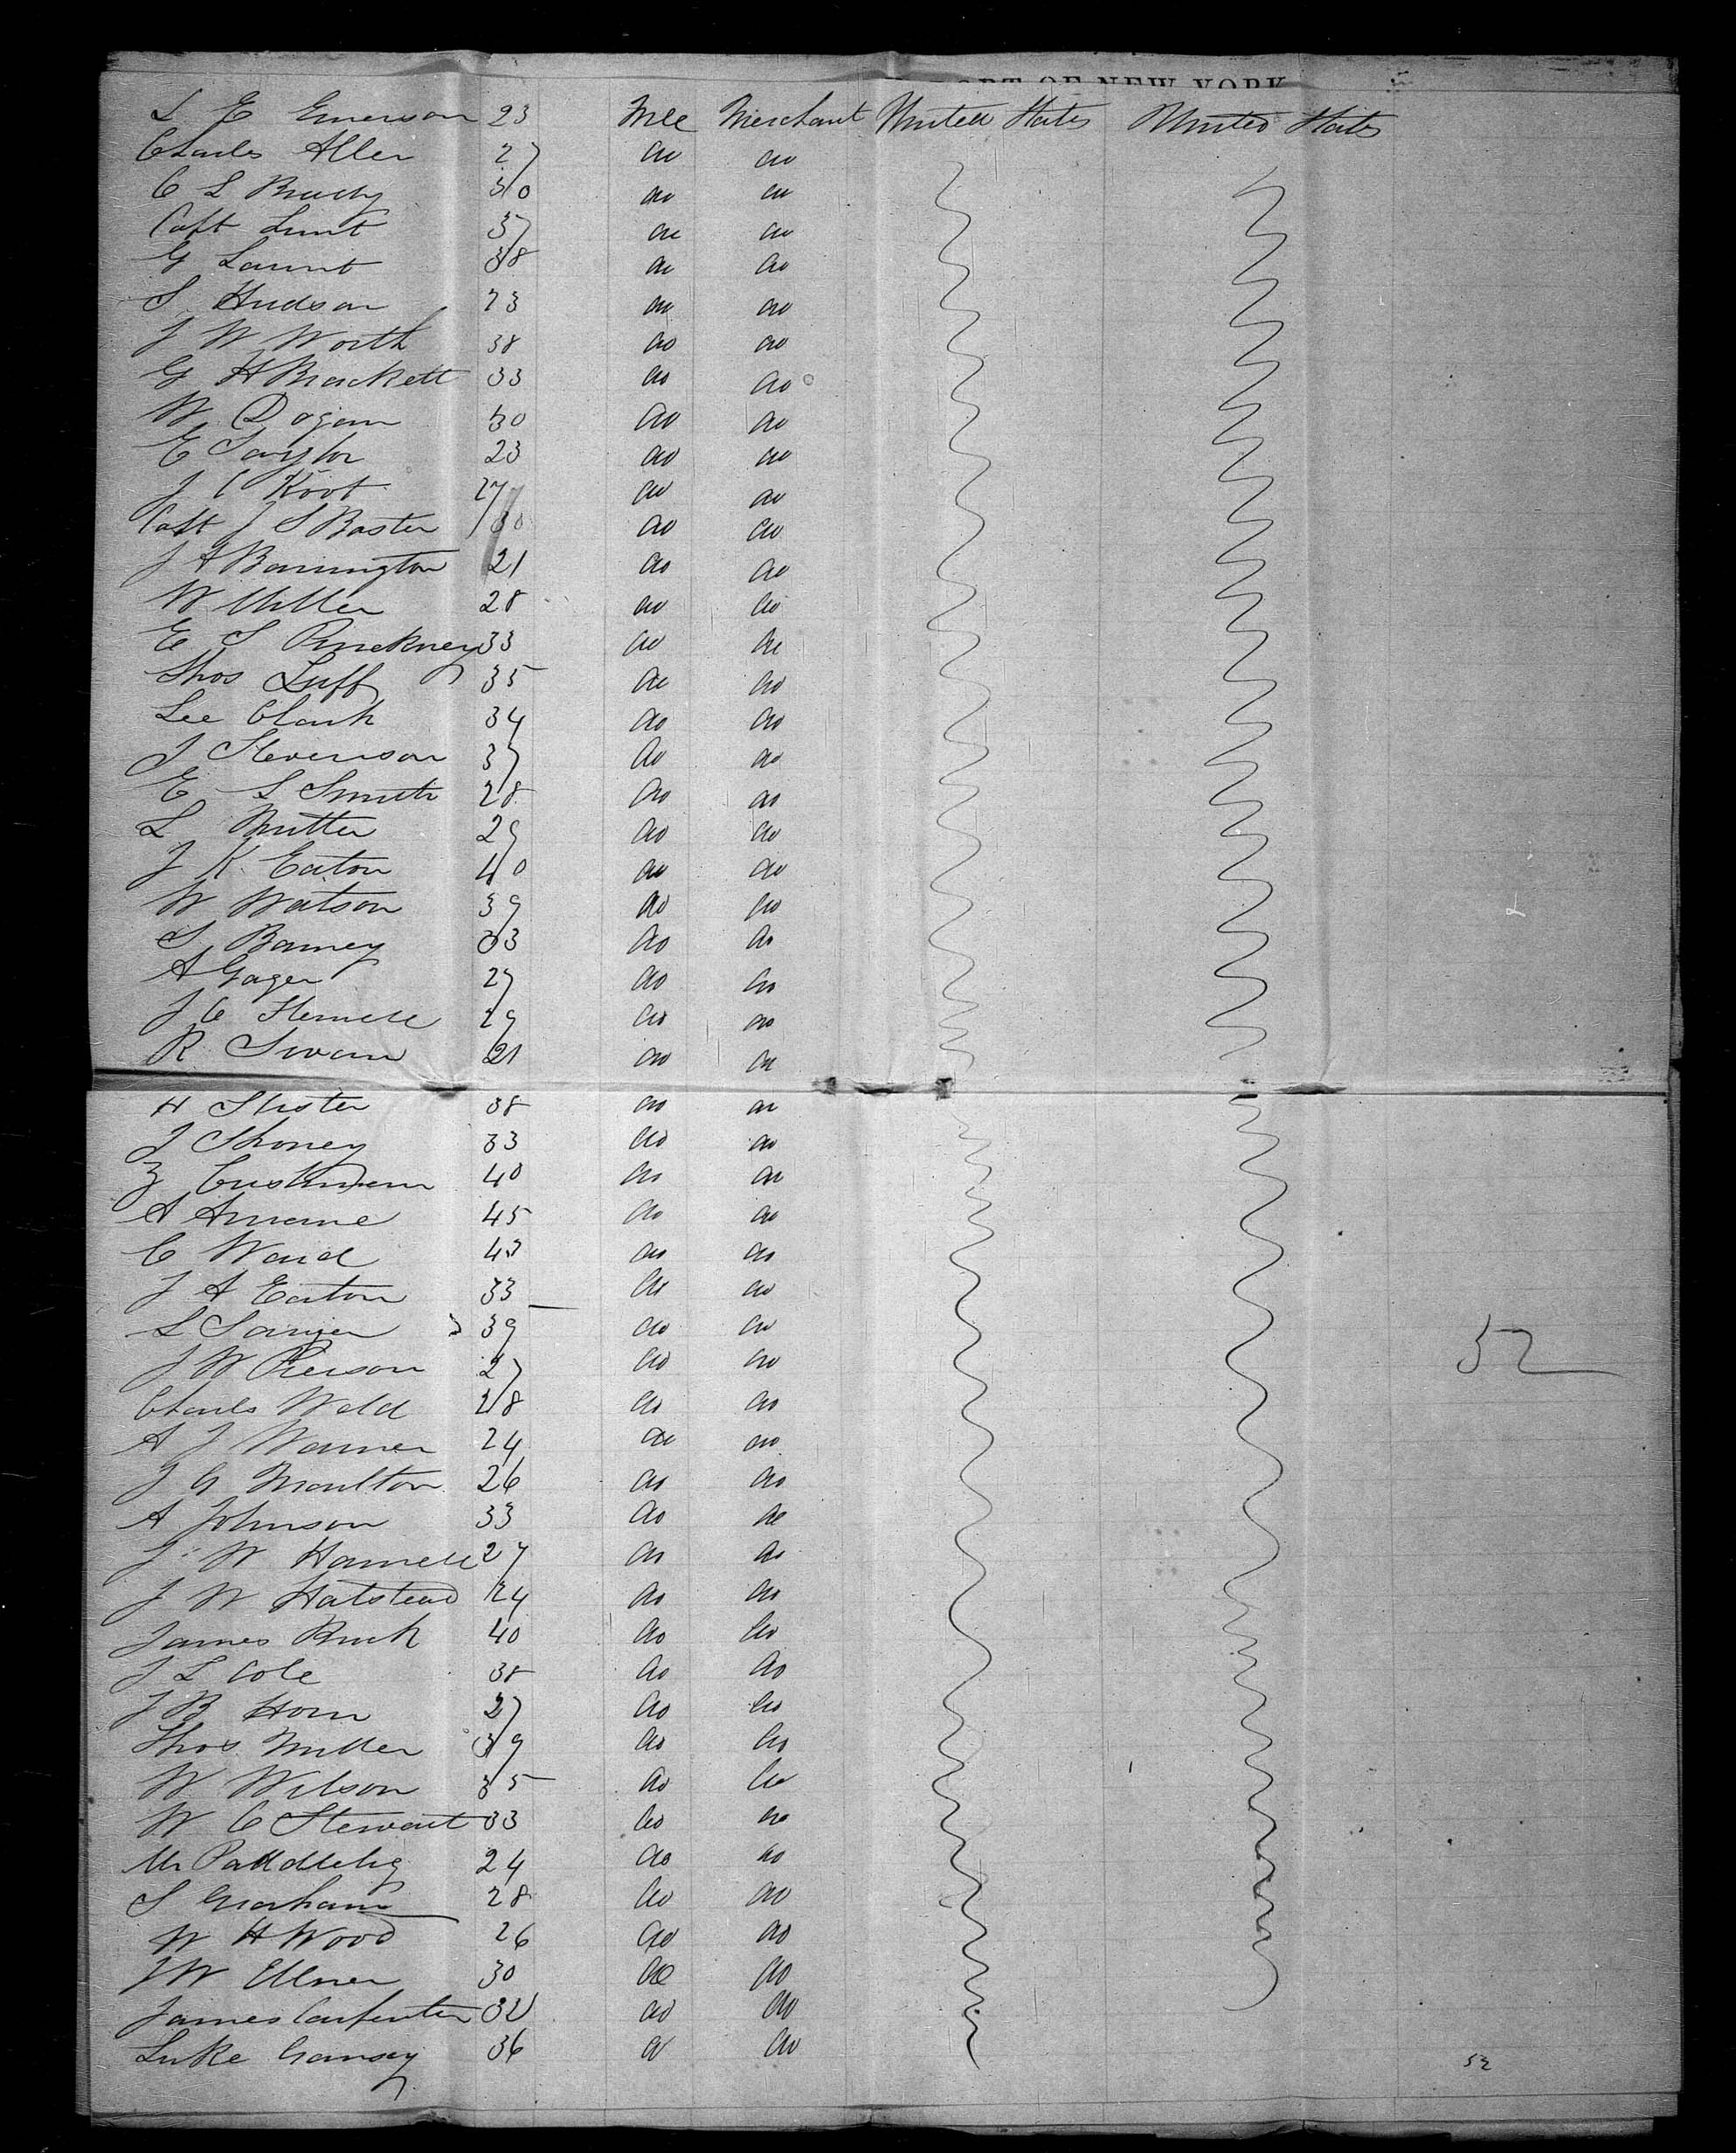 PORT OF NEW YORK
L E Emerson 23 Mle Merchant United States United States
Charles Allen 27 do do
C L Brady 30 do do
Capt Lunt 37 do do
G Launt 38 do do
S Hudson 23 do do
J W Worth 38 do do
G H Brackett 33 do do
W Dogan 30 do do
E Taylor 23 do do
J C Root 27 do do
Capt J S Baster 30 do do
J A Barrington 21 do do
W Miller 28 do do
E S Pinckney 33 do do
Thos Luff 35 do do
Lee Clark 34 do do
J Stevenson 37 do do
E S Smith 28 do do
L 29 do do
J K Eaton 40 do do
W Watson 39 do do
S Barney 33 do do
A Gager 27 do do
J C 29 do do
R Swain 21 do do
H 38 do do
J Thoney 33 do do
Z Cushman 40 do do
A 45 do do
C Ward 43 do do
J A Eaton 33 do do
L Sawyer 39 do do
J W Pierson 27 do do
Charles Weld 28 do do
A J Warner 24 do do
J G Moulton 26 do do
A Johnson 33 do do
J W 27 do do
J W Halstead 24 do do
James Buck 40 do do
J L Cole 38 do do
J B Horn 27 do do
Thos Miller 39 do do
W Wilson 35 do do
W C Stewart 33 do do
Mr 24 do do
S Graham 28 do do
W H Wood 26 do do
J W 30 do do
James Carpenter 32 do do
Luke 36 do do
52
52